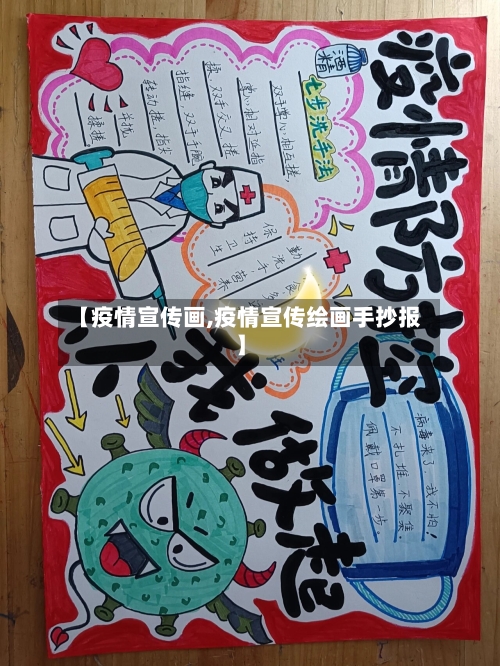 疫情防控
从我做起
酒精
七步洗手法
双手掌心相互搓,
掌心相对
搓 双手交叉搓
指缝 双手手腕
转动搓 指尖
揉搓
勤洗手
保持卫生
营养
病毒来了,我不怕!
不扎堆不聚集.
佩戴口罩第一步
【疫情宣传画,疫情宣传绘画手抄报
】